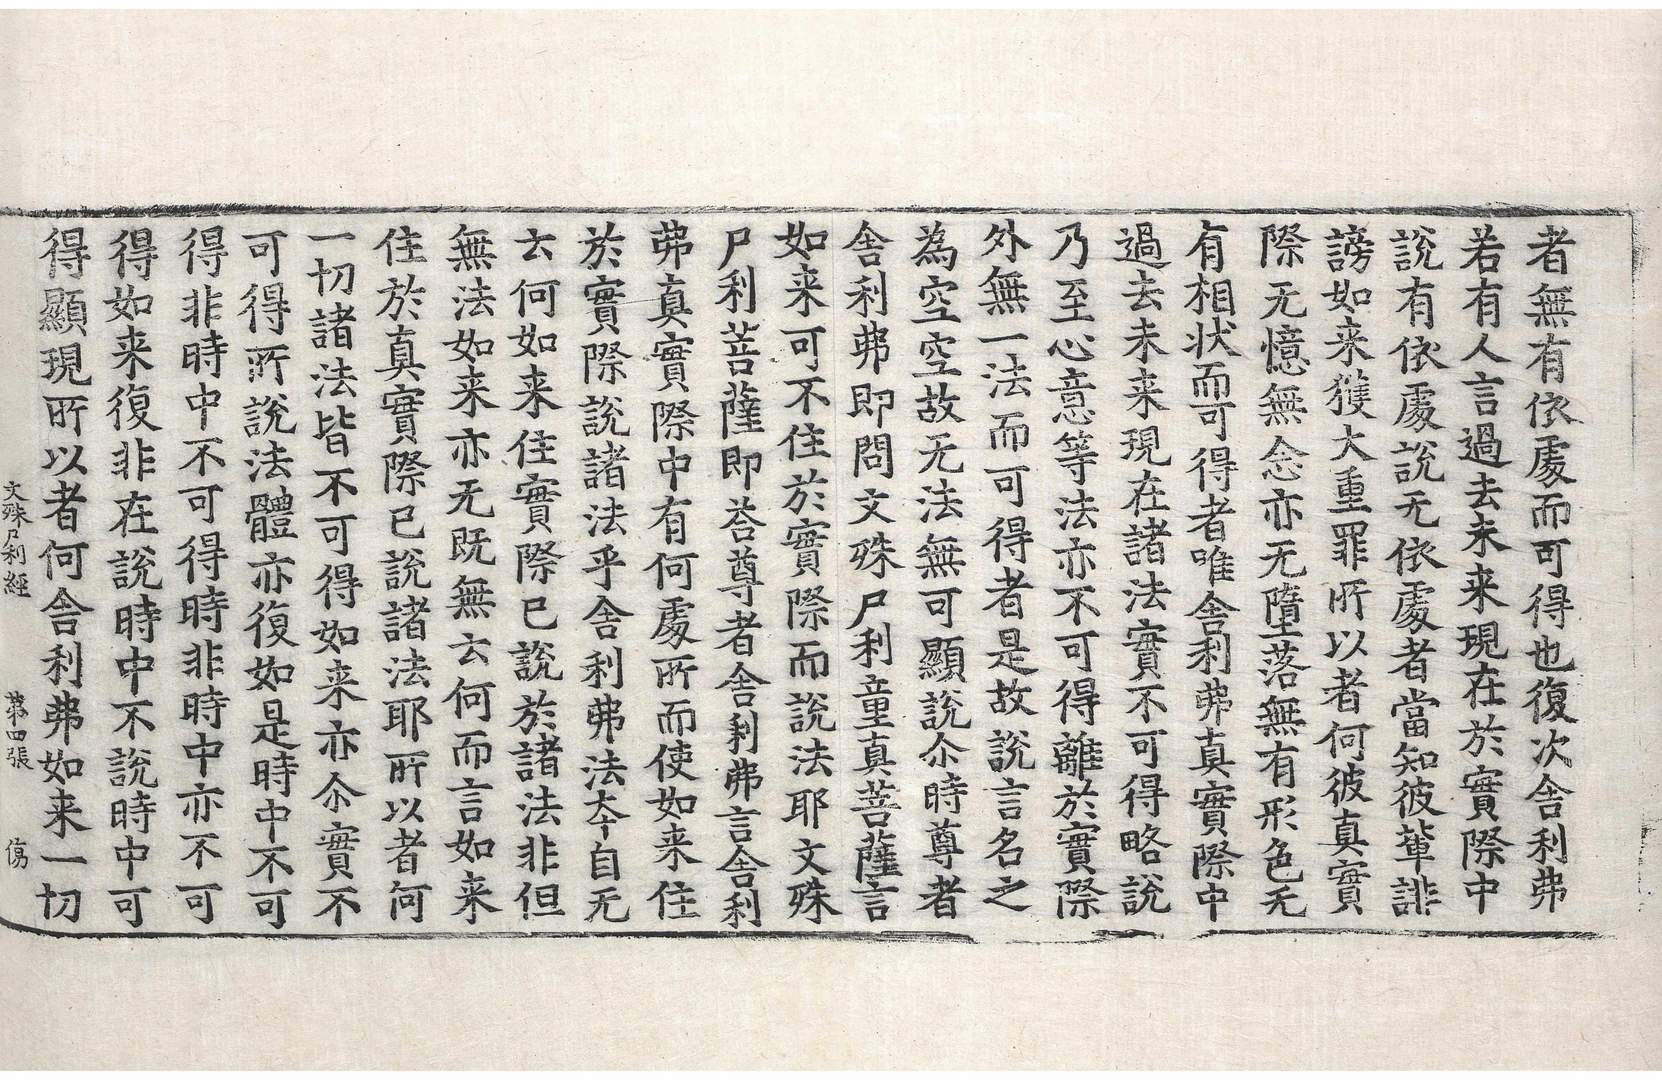 者無有依處而可得也復次舍利弗
若有人言過去未来現在於實際中
說有依處說无依處者當知彼輩誹
謗如来獲大重罪所以者何彼真實
際无憶無念亦无墮落無有形色无
有相状而可得者唯舍利弗真實際中
過去未来現在諸法實不可得略說
乃至心意等法亦不可得離於實際
外無一法而可得者是故說言名之
為空空故无法無可顯說尒時尊者
舍利弗即問文殊尸利童真菩薩言
如来可不住於實際而說法耶文殊
尸利菩薩即荅尊者舍利弗言舍利
弗真實際中有何處所而使如来住
於實際說諸法乎舍利弗法夲自无
云何如来住實際已說於諸法非但
無法如来亦无既無云何而言如来
住於真實際已說諸法耶所以者何
一切諸法皆不可得如来亦尒實不
可得所說法體亦復如是時中不可
得非時中不可得時非時中亦不可
得如来復非在說時中不說時中可
得顯現所以者何舍利弗如来一切
文殊尸利經 第四張 傷